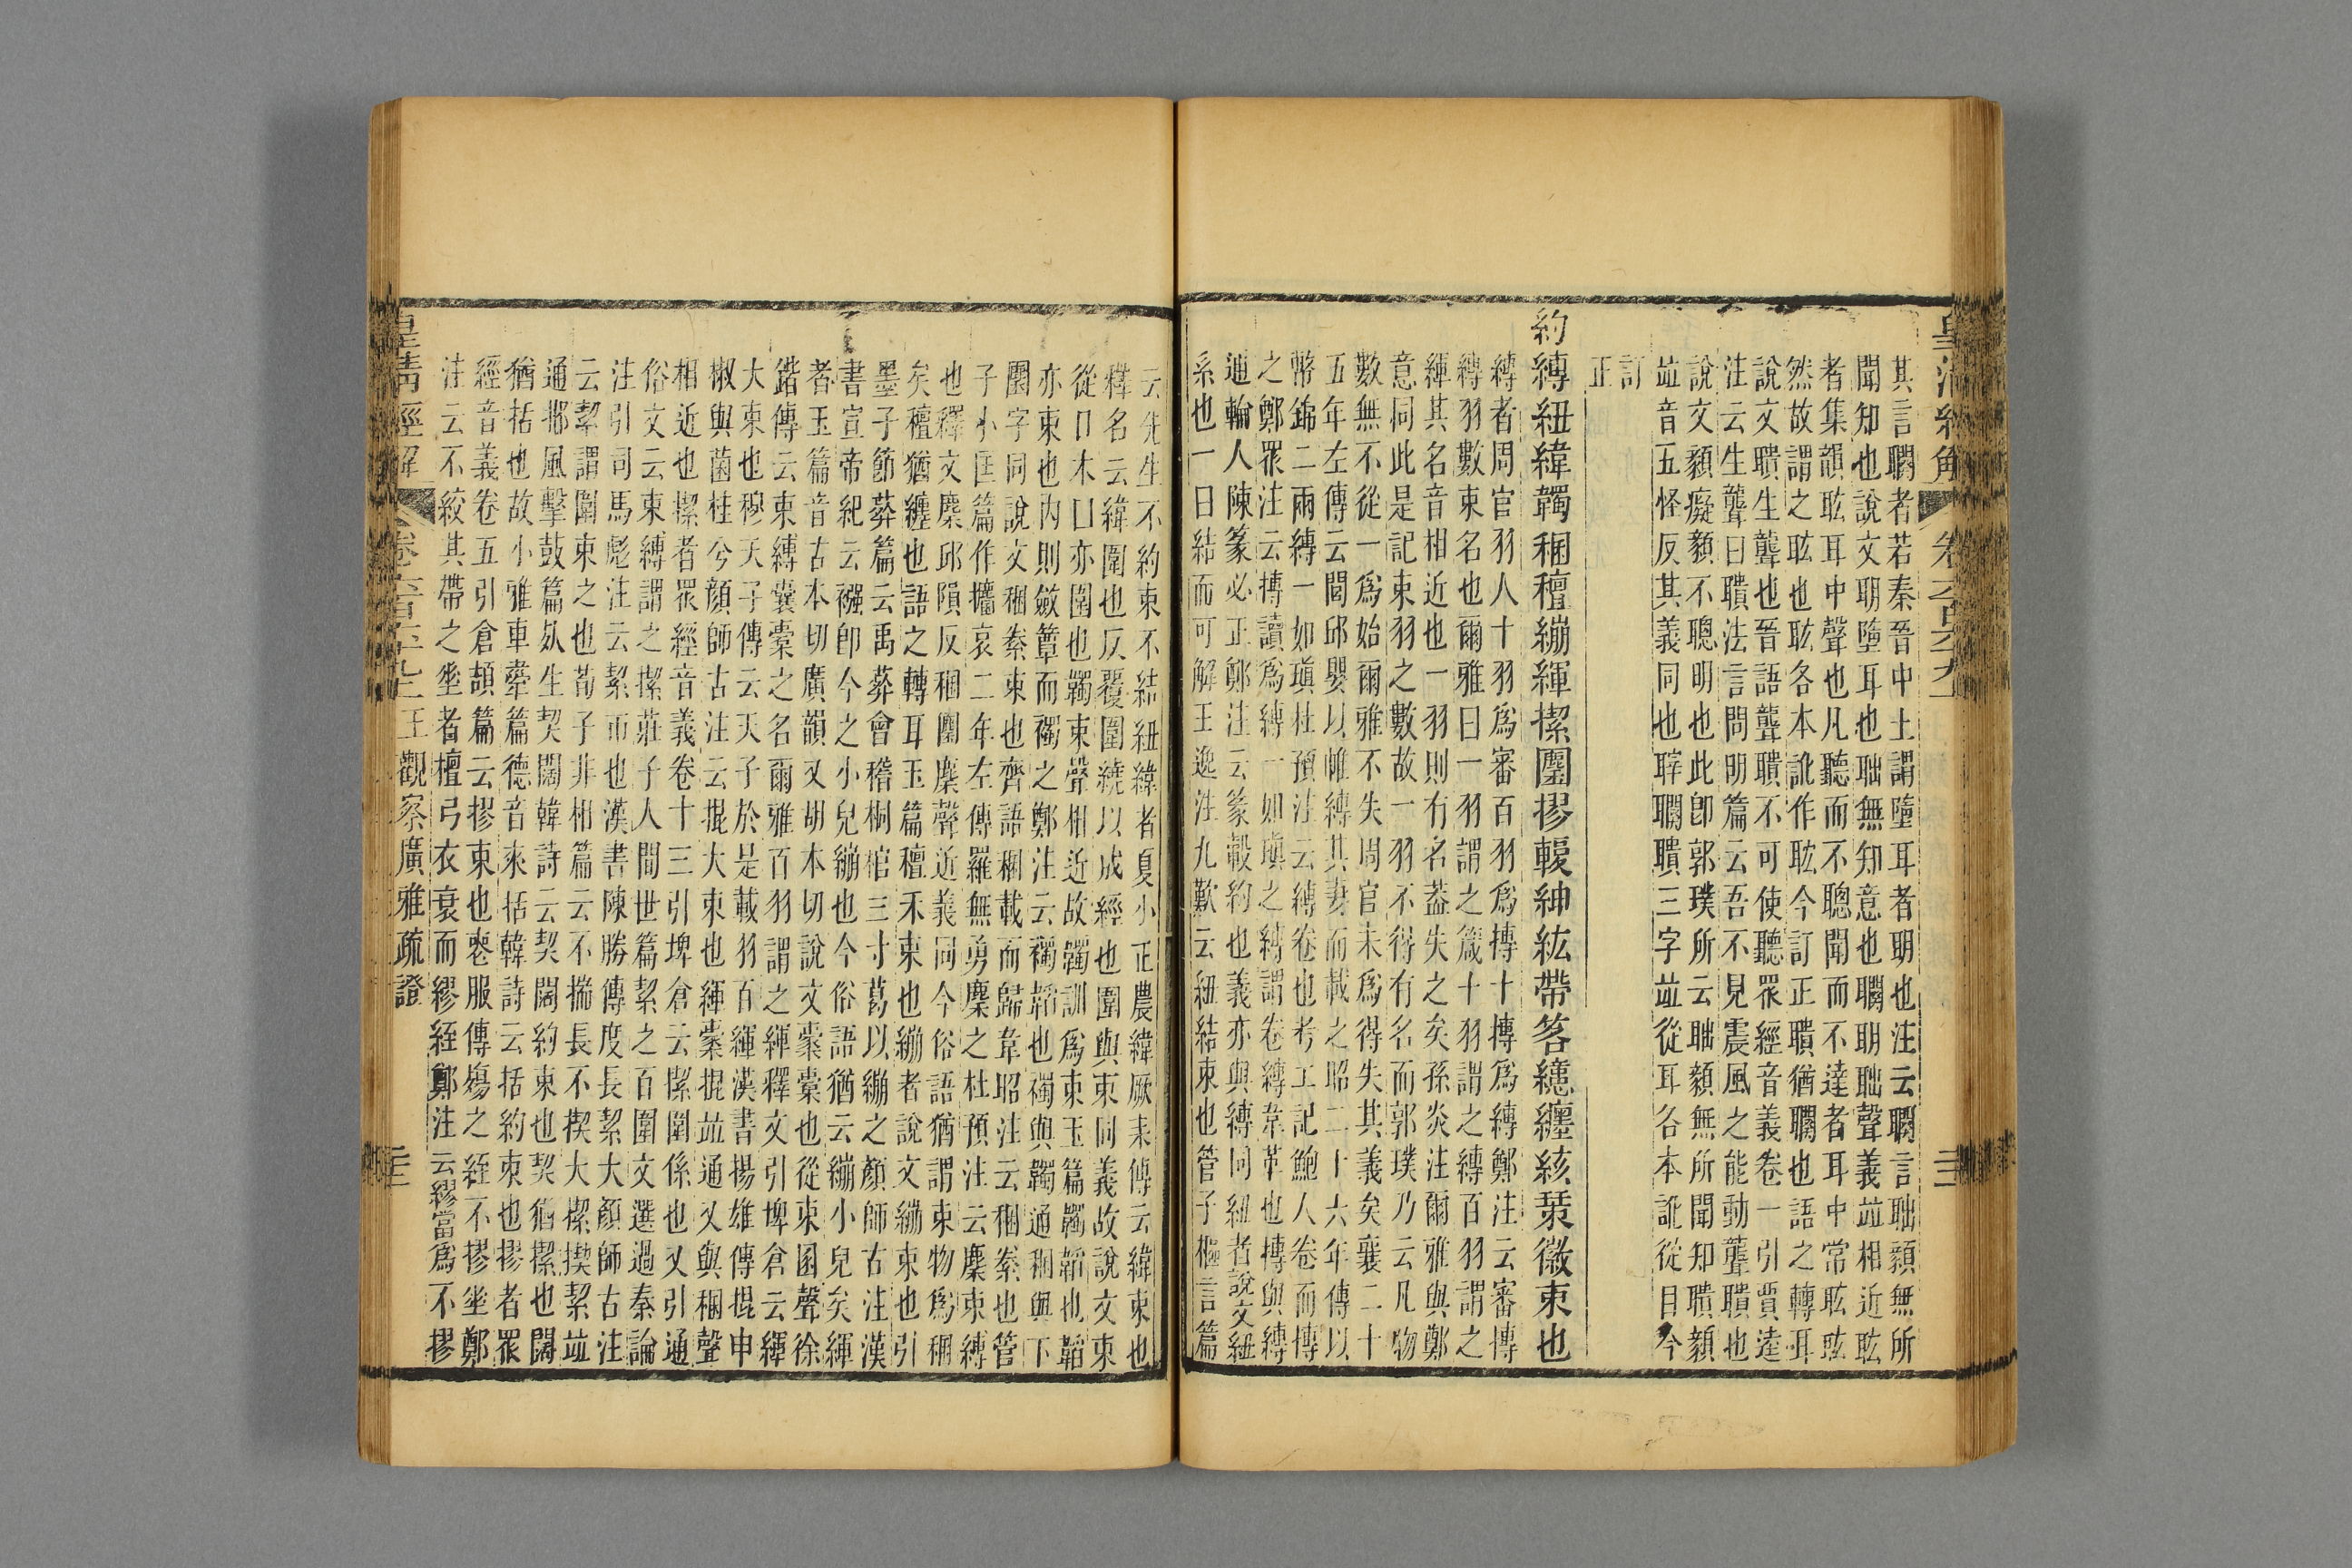 皇清經解
其言䦧者若秦晉中土謂墮耳者明也注云䦧言聉顡無所
聞知也說文明墮耳也聉無知意也䦧明聉聲義竝相近䀕
者集韻䀕耳中聲也凡聽而不聰聞而不達者耳中常䀕䀕
然故謂之䀕也䀕各本訛作䀕今訂正聵猶䦧也語之轉耳
說文聵生聾也晉語聾聵不可使聽眾經音義卷一引賈逵
注云生聾曰聵法言問明篇云吾不見震風之能動聾聵也
說文顡癡顡不聰明也此卽郭璞所云聉顡無所聞知聵顡
竝音五怪反其義同也聹䦧聵三字竝從耳各本訛從目今
訂
正
約縛紐緯韣稇䅹繃緷㩎圛摎䡓紳紘帶笿繱纏絯䅇徽束也
縛者周官羽人十羽爲審百羽爲摶十摶爲縛鄭注云審摶
縛羽數束名也爾雅曰一羽謂之箴十羽謂之縛百羽謂之
緷其名音相近也一羽則有名蓋失之矣孫炎注爾雅與鄭
意同此是記束羽之數故一羽不得有名而郭璞乃云凡物
數無不從一爲始爾雅不失周官未爲得失其義矣襄二十
五年左傳云閭邱嬰以帷縛其妻而載之昭二十六年傳以
幣錦二兩縛一如瑱杜預注云縛卷也考工記鮑人卷而摶
之鄭眾注云摶讀爲縛一如瑱之縛謂卷縛韋革也摶與縛
通輪人陳篆必正鄭注云篆轂約也義亦與縛同紐者說文紐
系也一曰結而可解王逸注九歎云紐結束也管子樞言篇
云先生不約束不結紐緯者夏小正農緯厥耒傳云緯束也
釋名云緯圍也反覆圍繞以成經也圍與束同義故說文束
從囗木囗亦圍也韣束聲相近故韣訓爲束玉篇韣韜也韜
亦束也內則斂簟而襡之鄭注云襡韜也襡與韣通稇與下
圛字同說文稇絭束也齊語稇載而歸韋昭注云稇絭也管
子小匡篇作攟哀二年左傳羅無勇麇之杜預注云麇束縛
也釋文麇邱隕反稇圛麇聲近義同今俗語猶謂束物爲稇
矣䅹猶纏也語之轉耳玉篇䅹禾束也繃者說文繃束也引
墨子節葬篇云禹葬會稽桐棺三寸葛以繃之顏師古注漢
書宣帝紀云襁卽今之小兒繃也今俗語猶云繃小兒矣緷
者玉篇音古本切廣韻又胡本切說文橐囊也從束圂聲徐
鍇傳云束縛囊橐之名爾雅百羽謂之緷釋文引埤倉云緷
大束也穆天子傳云天子於是載羽百緷漢書揚雄傳掍申
椒與菌桂兮顏師古注云掍大束也緷橐掍竝通又與稇聲
相近也㩎者眾經音義卷十三引埤倉云㩎圍係也又引通
俗文云束縛謂之㩎莊子人間世篇絜之百圍文選過秦論
注引司馬彪注云絜帀也漢書陳勝傳度長絜大顏師古注
云絜謂圍束之也荀子非相篇云不揣長不揳大㩎揳絜竝
通邶風擊鼓篇死生契闊韓詩云契闊約束也契猶㩎也闊
猶括也故小雅車舝篇德音來括韓詩云括約束也摎者眾
經音義卷五引倉頡篇云摎束也喪服傳殤之絰不摎垂鄭
注云不絞其帶之垂者檀弓衣衰而繆絰鄭注云繆當爲不摎
皇淸經解 王觀察廣雅疏證